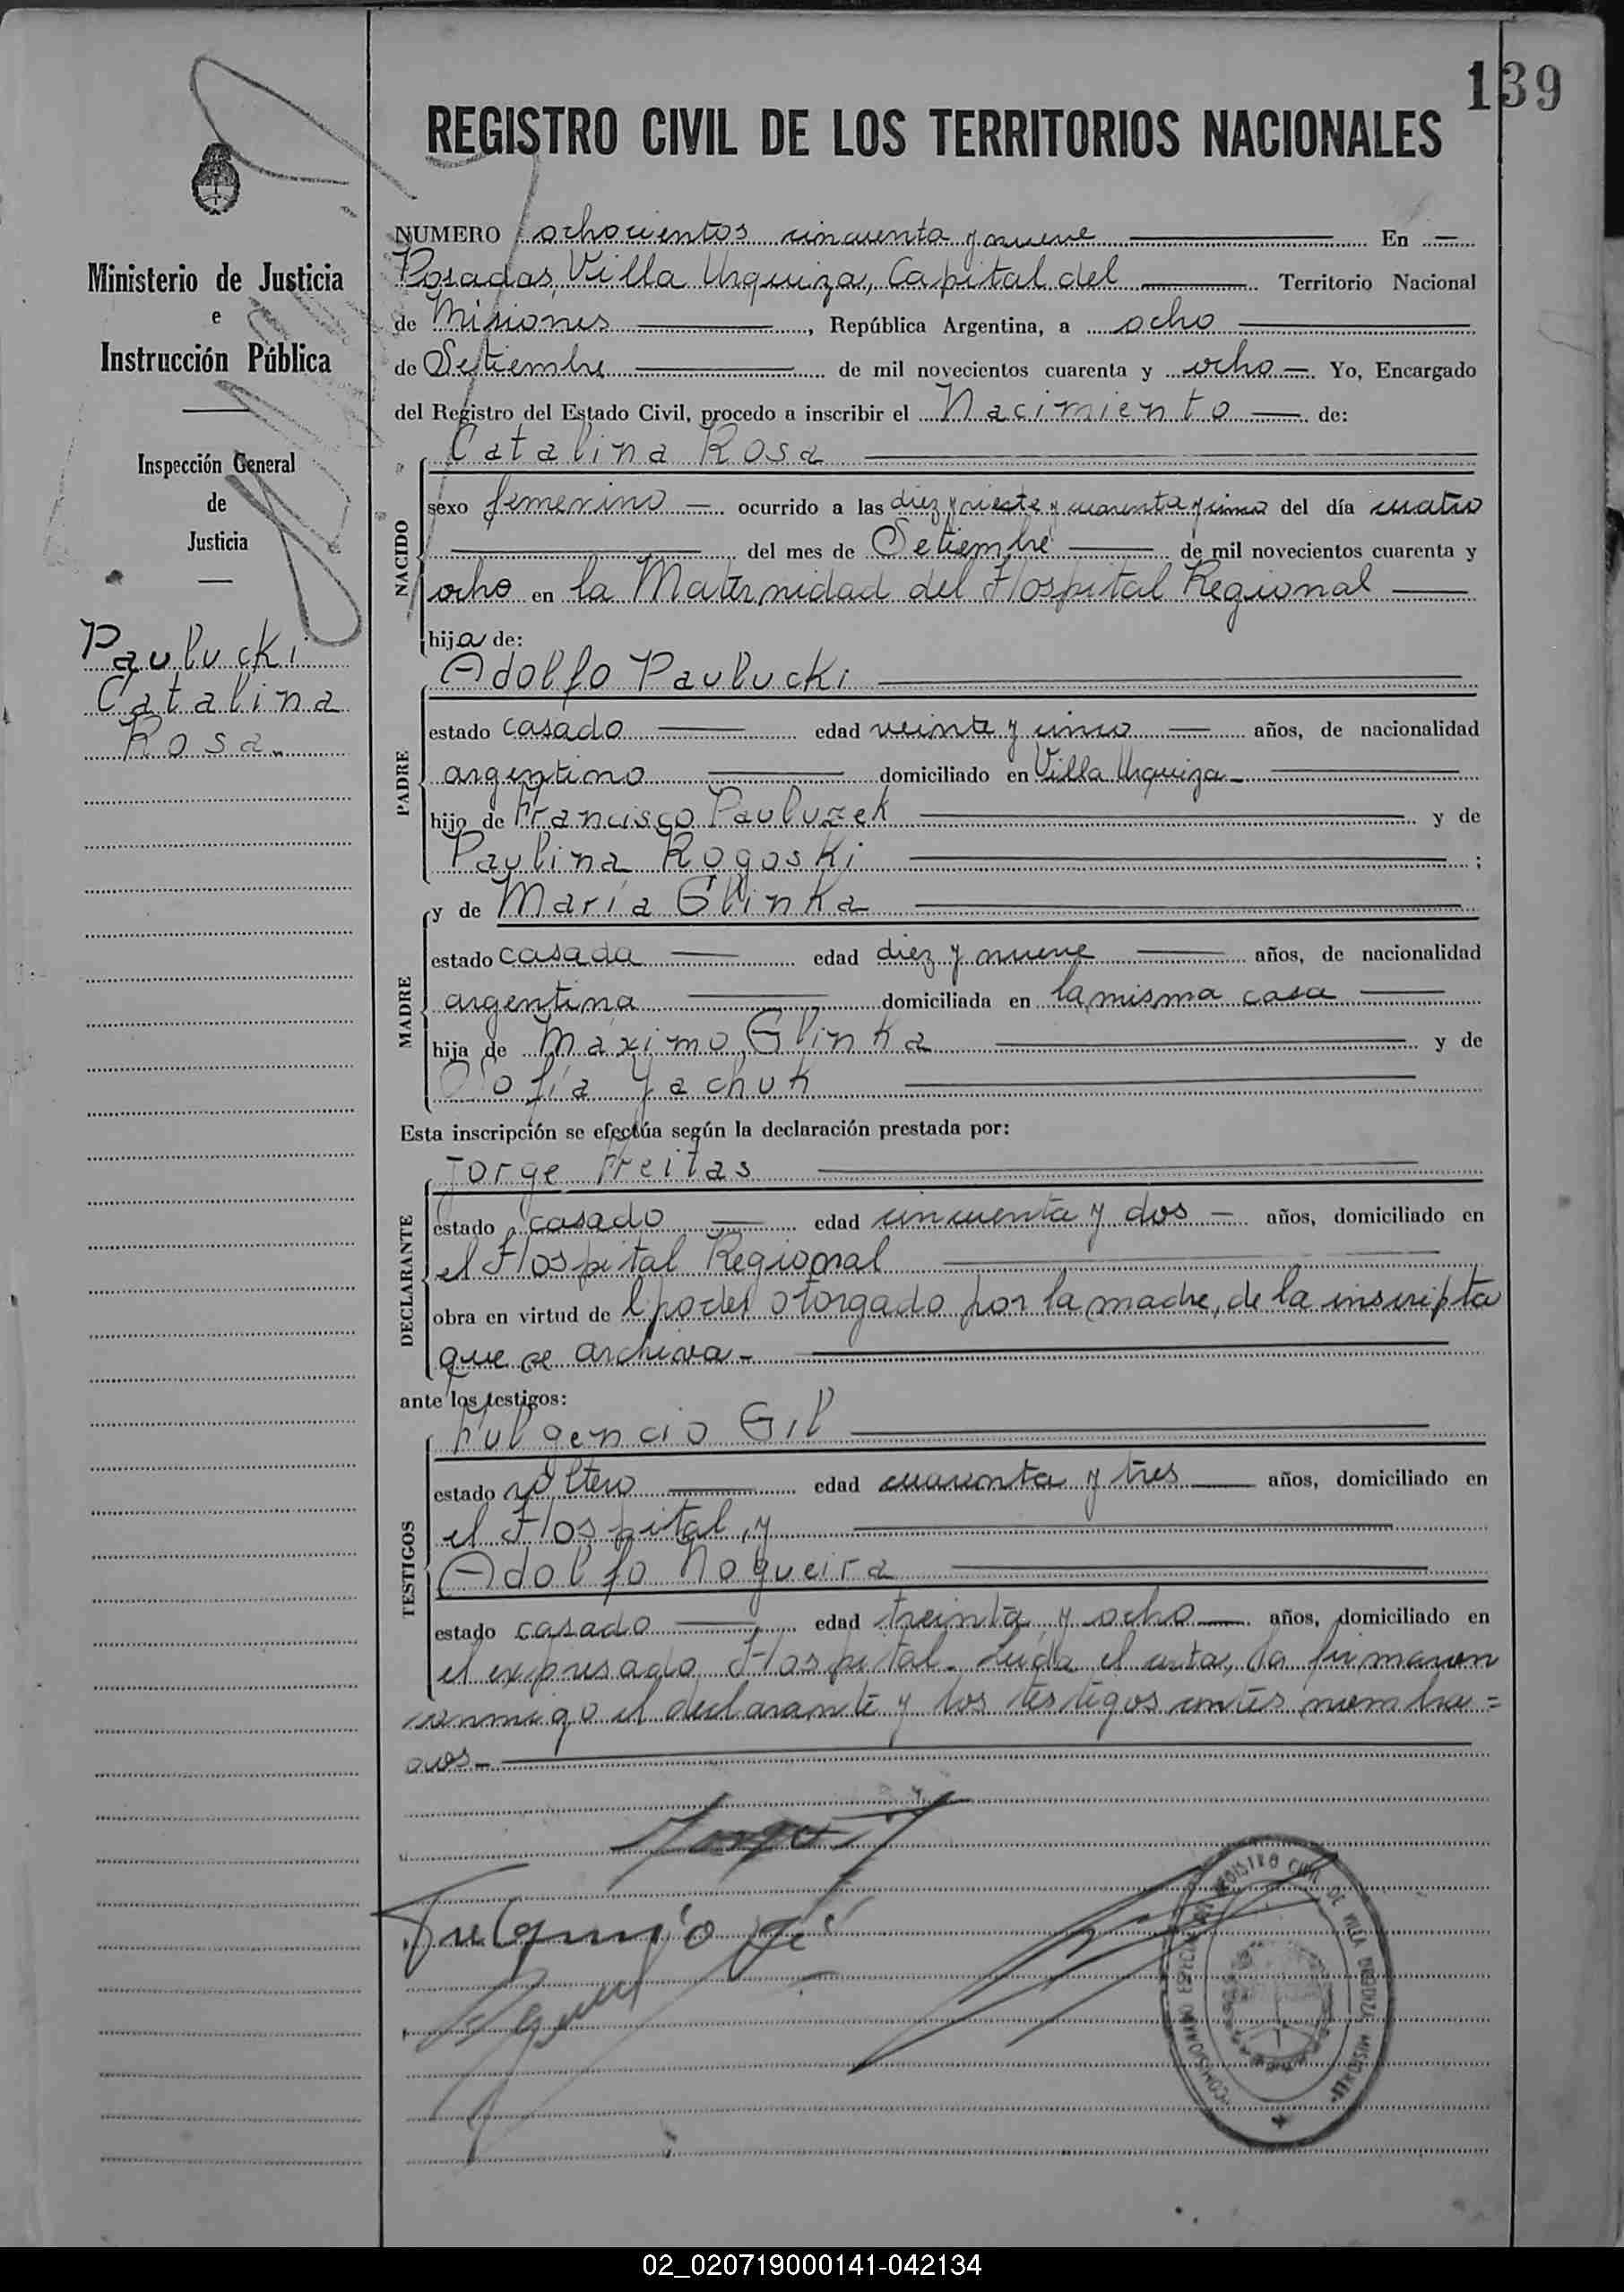 139
REGISTRO CIVIL DE LOS TERRITORIOS NACIONALES
Ministerio de Justicia
e
Instrucción Pública
Inspección General
de
Justicia
Paulucki
Catalina
Rosa
NUMERO ochocientos cincuenta y nueve En
Posadas, Villa Urquiza, Capital del Territorio Nacional
de Misiones, República Argentina, a ocho
de Setiembre de mil novecientos cuarenta y ocho Yo, Encargado
del Registro del Estado Civil, procedo a inscribir el Nacimiento de:
Catalina Rosa
NACIDO
sexo femenino ocurrido a las diez y siete y cuarenta y cinco del día cuatro
del mes de Setiembre de mil novecientos cuarenta y
ocho en la Maternidad del Hospital Regional
hija de:
Adolfo Paulucki
PADRE
estado casado edad veinte y cinco años, de nacionalidad
argentino domiciliado en Villa Urquiza
hijo de Francisco Pauluzek y de
Paulina Rogoski ;
y de María Glinka
MADRE
estado casada edad diez y nueve años, de nacionalidad
argentina domiciliada en la misma casa
hija de Máximo Glinka y de
Sofía Yachuk
Esta inscripción se efectúa según la declaración prestada por:
Jorge Freitas
DECLARANTE
estado casado edad cincuenta y dos años, domiciliado en
el Hospital Regional
obra en virtud de l poder otorgado por la madre, de la inscripta
que se archiva.-
ante los testigos:
Fulgencio Gil
TESTIGOS
estado soltero edad cuarenta y tres años, domiciliado en
el Hospital, y
Adolfo Nogueira
estado casado edad treinta y ocho años, domiciliado en
el expresado Hospital. Leída el acta, la firmaron
conmigo el declarante y los testigos antes nombra=
dos.-
Jorge
Fulgencio Gil
REGISTRO CIVIL DE VILLA URQUIZA MISIONES
COMISIONADO
02_020719000141-042134